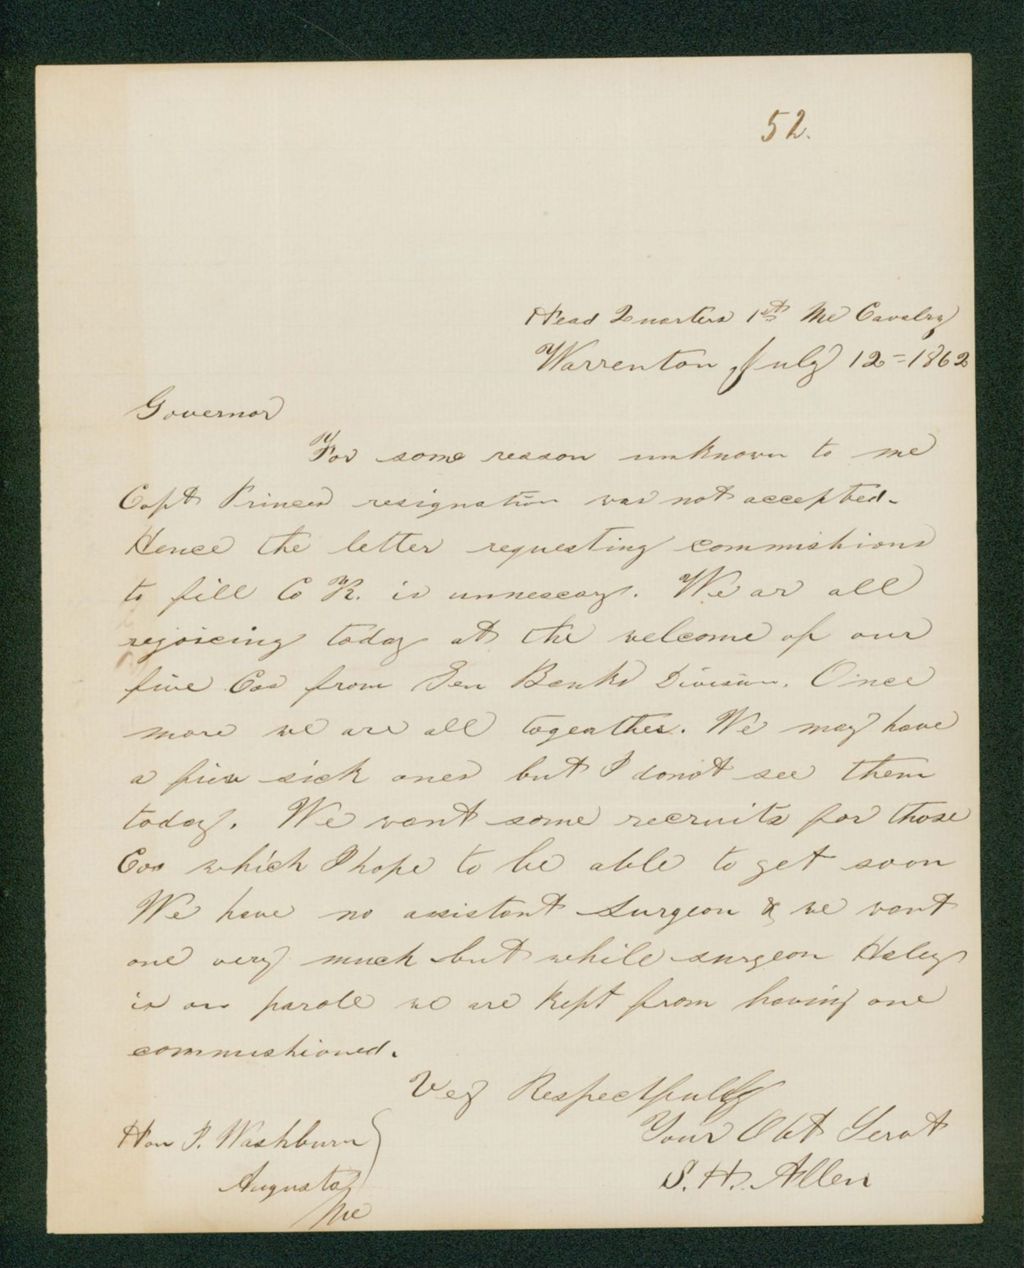 52.
Head Quarters 1st Me Cavalry
Warrenton July 12 = 1862
Governor
For some reason unknown to me
Capt Princes resignation was not accepted.
Hence the letter requesting commishions
to fill Co K. is unnescary. We ar all
rejoiceing today at the welcome of our
five Cos from Gen Banks Division. Once
more we are all togeather. We may have
a few sick ones but I donot see them
today. We want some recruits for those
Cos which I hope to be able to get soon
We have no assistant surgeon & we want
one very much but while surgeon Haley
is on parole we are kept from having one
commishioned.
Vey Respectfully
Your Obt Servt
S. H. Allen
Hon I. Washburn
Augusta
Me